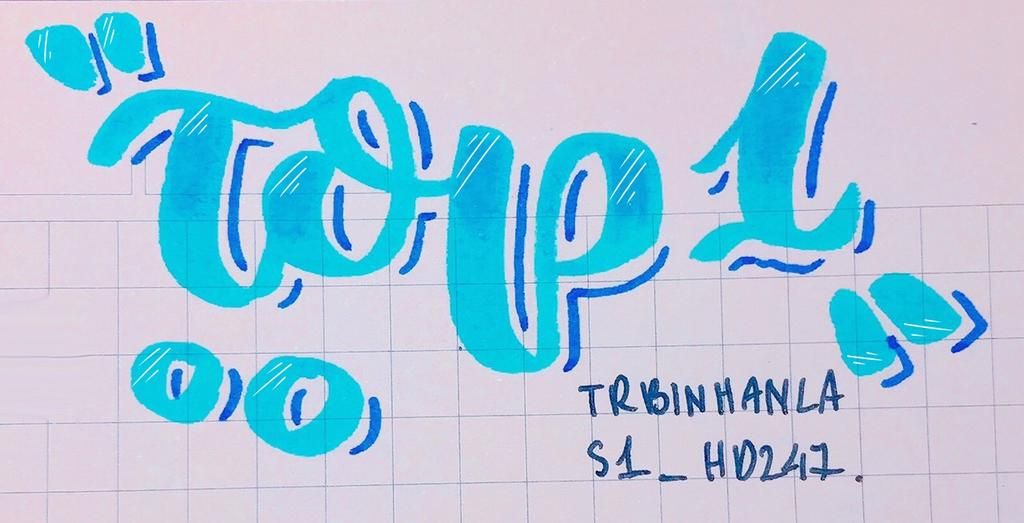 "Top 1"
TRBINHANLA
S1_HD247.